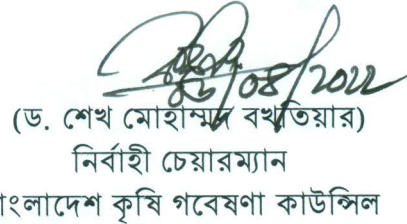 (ড. শেখ মোহাম্মদ বখতিয়ার)
নির্বাহী চেয়ারম্যান
াংলাদেশ কৃষি গবেষণা কাউন্সিল